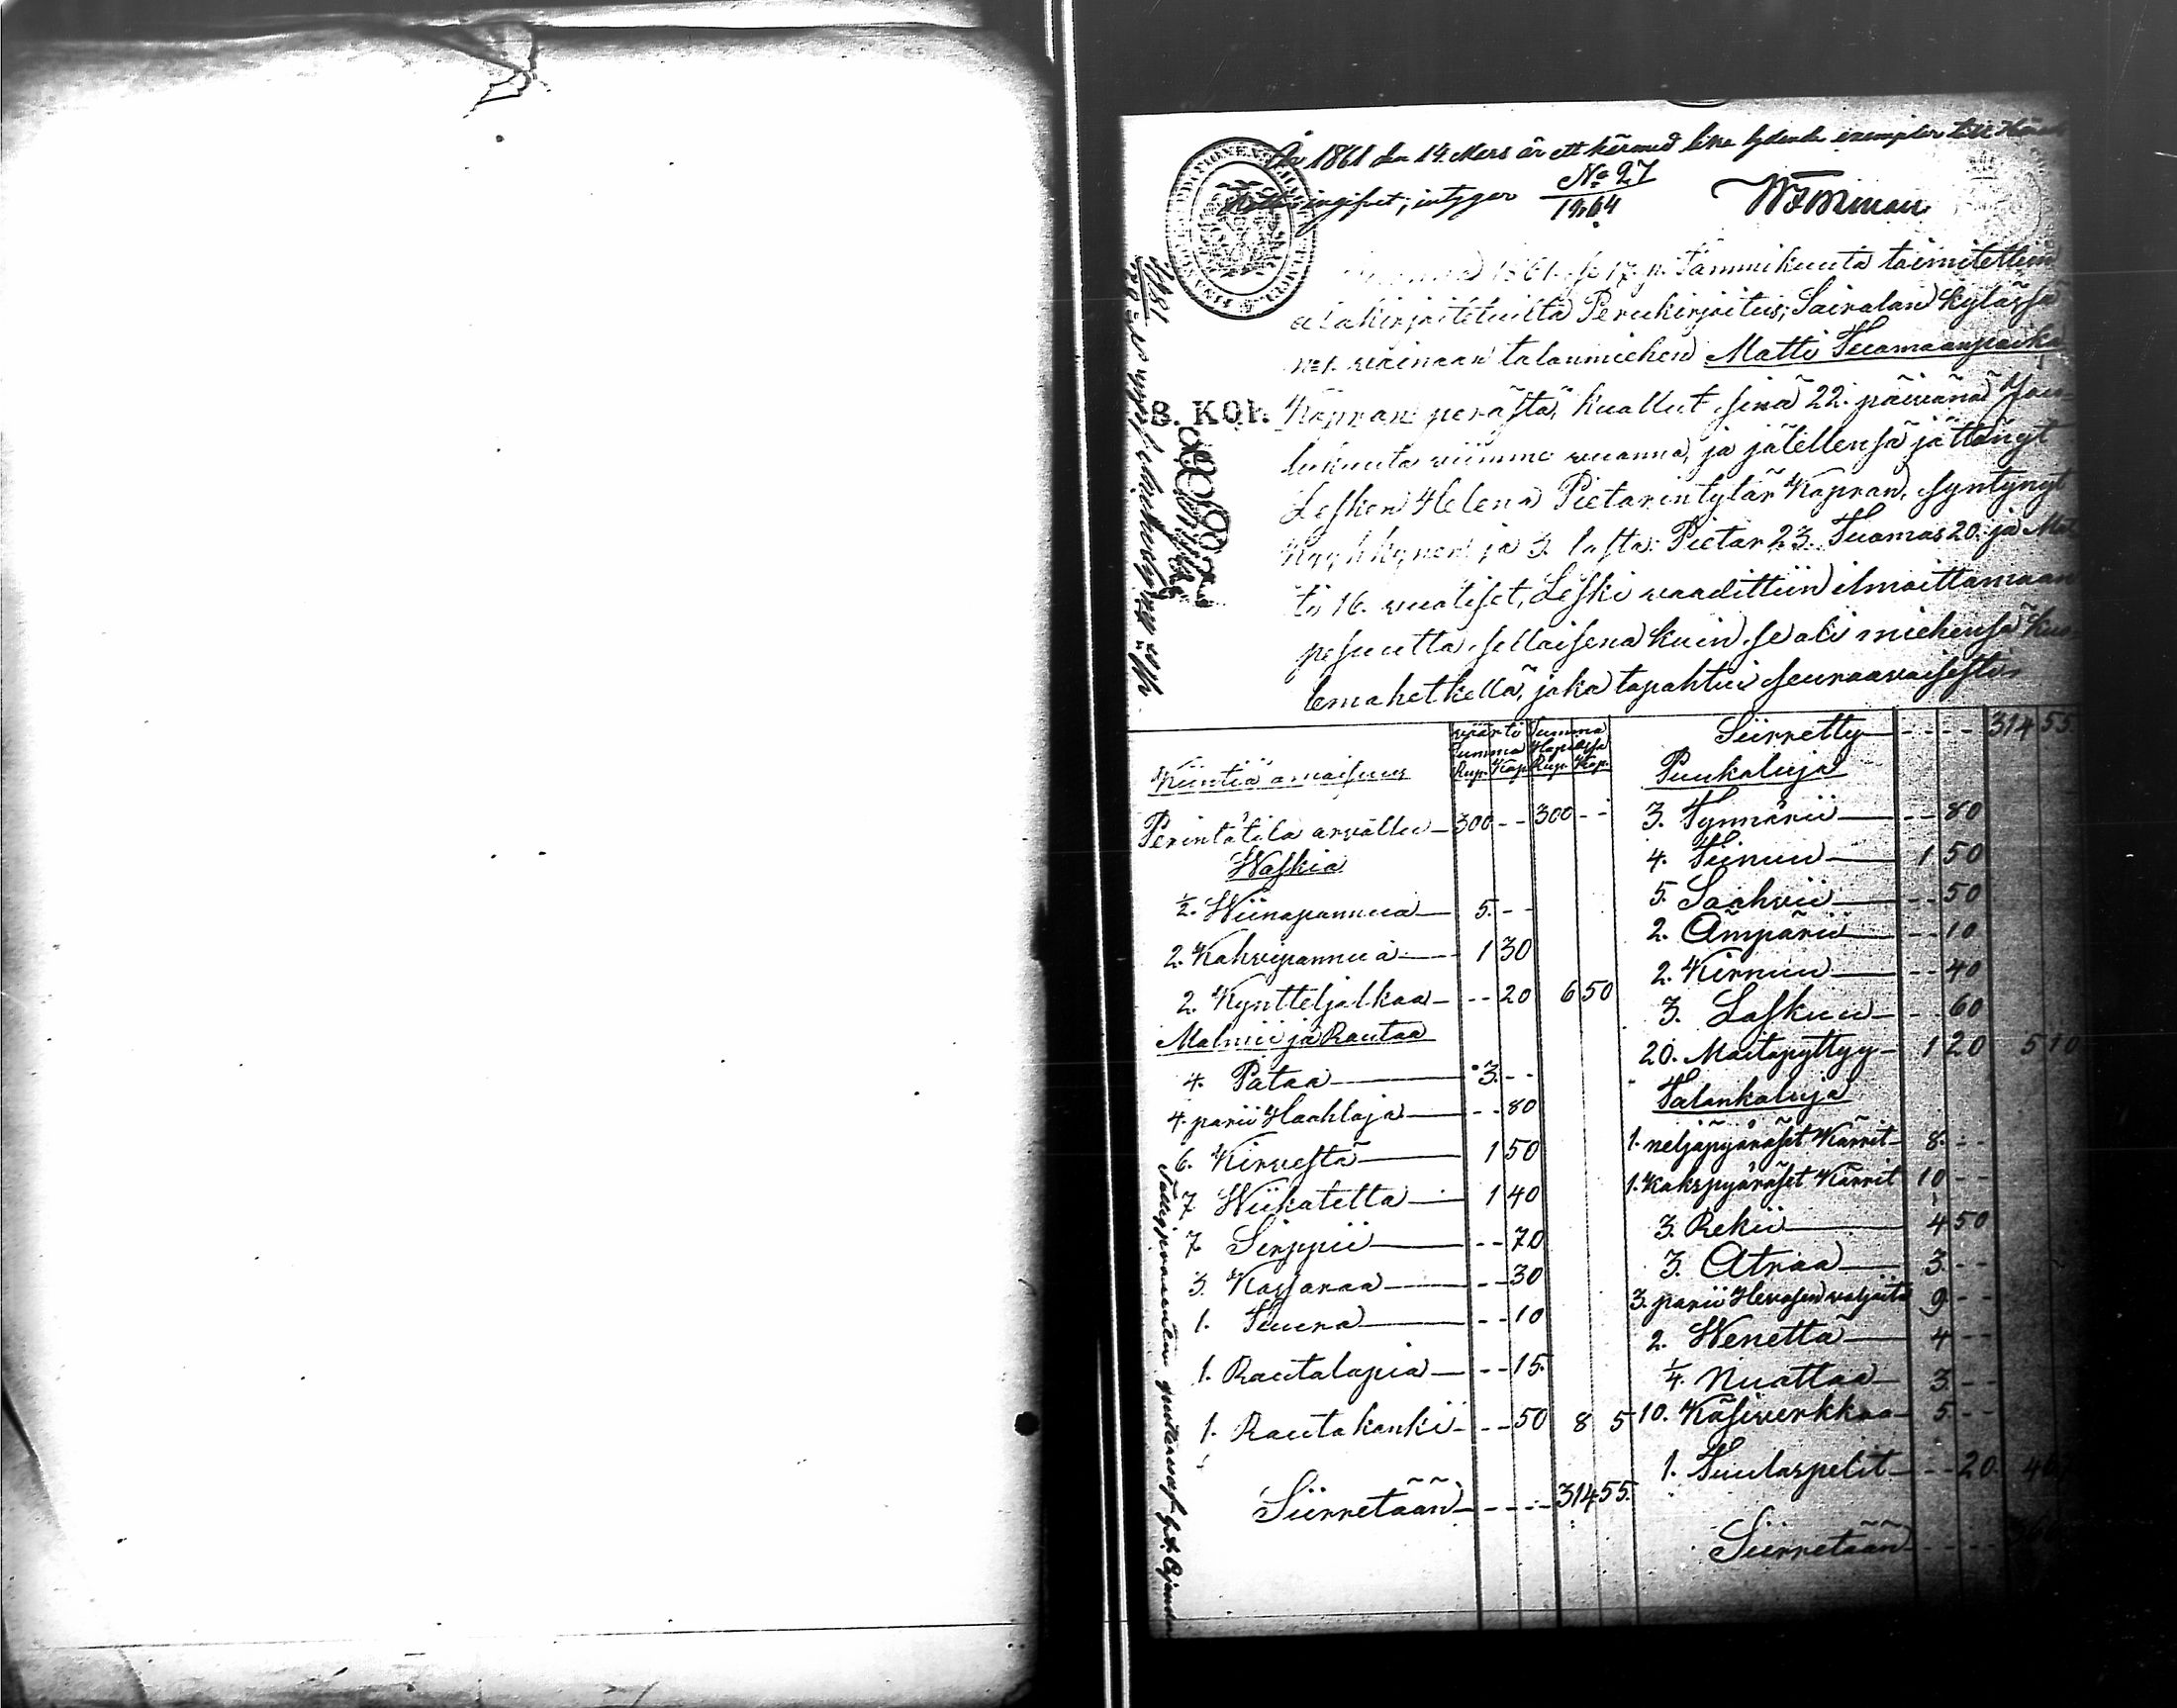 År 1861 den 14. Mars är ett härmed lika lydande exemplar till Härads
Rätten ingifvet; intygar
No 27
1964
1861. se 17. p. Tammikuuta toimitettiin
allakirjoitetuilta Perukirjoitus, Sairalan kylässä
No 1. wainaan talonmiehen Matti Tuomaanpoika
Kopran perästä, kuollut sinä 22. päiwänä Jou-
lukuuta wiimme wuonna, ja jälellensä jättänyt
Lesken Helena Pietarintytär Kopran, syntynyt
ja 3. lasta: Pietar 23. Tuomas 20. ja Mat-
ti 16. wuotiset, Leski waadittiin ilmoittamaan
pesuutta sellaisena kuin se oli miehensä kuo-
lemahetkellä, joka tapahtui seuraawaisesti.
B. KOP.
Kiintiä omaisuus
wäärti Summa
Summa Hopiassa
Rup. Kop. Rup. Kop.
Perintötila arwattu 300 - - 300 - -
Waskia
1/2. Wiinapannua 5. - -
2. Kahwipannua 1 30
2. Kyntteljalkaa - - 20 6 50
Malmii ja Rautaa
4. Pataa 3. - -
4. parii Haahloja - - 80
6. Kirwestä 1 50
7 Wiikatetta 1 40
7 Sirppii - - 70
3. Kassaraa - - 30
1. Tuura - - 10
1. Rautalapia - - 15.
1. Rautakanki - - 50 8 5
Siirretään - - - - 314 55.
Siirretty - - - - 314 55.
Puukaluja
3. Tynnärii - - 80
4. Tiinuu 1 50
5. Saahwii - - 50
2. Ämpärii - - 10
2. Kirnuu - - 40
3. Laskuu - - 60
20. Maitopyttyy 1 20 5 10
Talonkaluja
1. neljäpyöräset Kärrit 8. - -
1. Kakspyöräset Kärrit 10 - -
3. Rekii 4 50
3. Atraa 3. - -
3. parii Hewosen waljaita 9 - -
2. Wenettä 4 - -
1/4. Nuottaa 3. - -
10. Käsiwerkkoa 5 - -
1. Tuulaspelit - - 20.
Siirretään - - - -